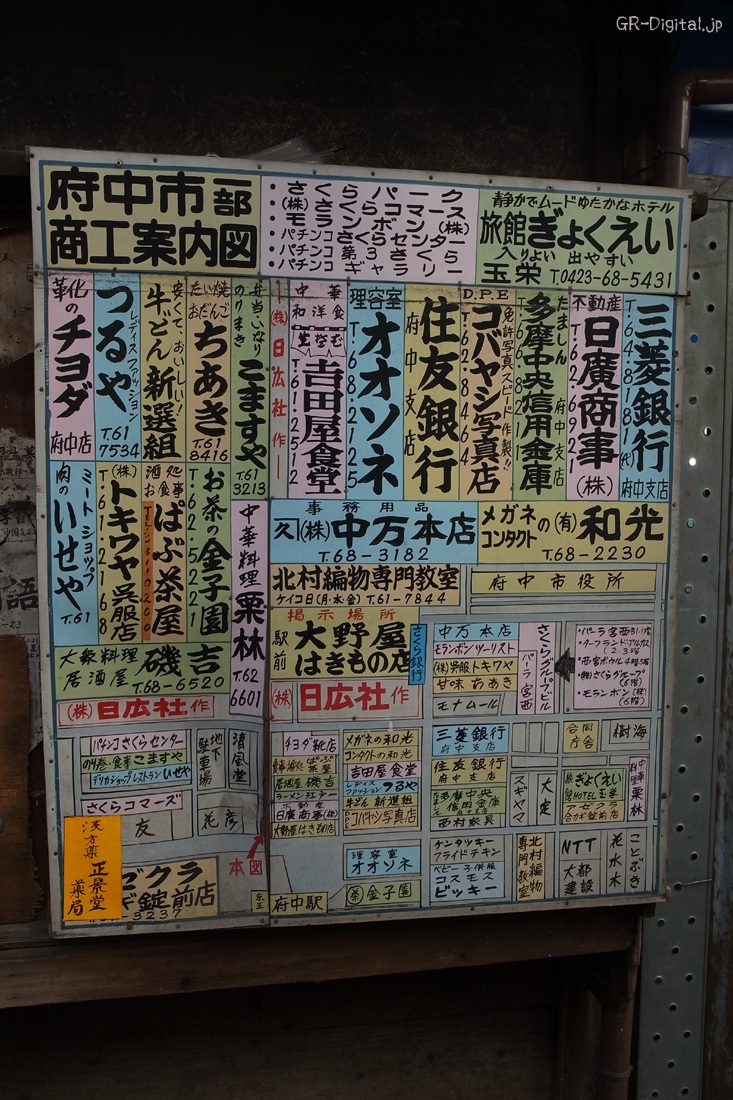 GR-Digital.jp
府中市一部
商工案内図
・さくらパーク
・(株)さくらコマース
・モランボン(株)
・パチンコさくらセンター
・パチンコ第3さくら
・パチンコギャラリー
静かでムードゆたかなホテル
旅館ぎょくえい
入りよい 出やすい
玉栄 T.0423-68-5431
三菱銀行
T.64-8181(代)
府中支店
不動産
日廣商事(株)
T.62-6921
たましん
多摩中央信用金庫
府中支店
D.P.E
コバヤシ写真店
免許写真スピード作製!!
T.62-8464
住友銀行
府中支店
理容室
オオソネ
T.68-2125
中華
和洋食
生そば
吉田屋食堂
T.61-2512
(株)日広社作
弁当・いなり
のりまき
こますや
T.61
3213
たい焼
おだんご
ちあき
T.61
8416
安くて、おいしい!
牛どん新選組
レディスファッション
つるや
T.61
7534
靴の
チヨダ
府中店
メガネの
コンタクト
(有)和光
T.68-2230
事務用品
(株)中万本店
T.68-3182
中華料理
栗林
T.62
6601
お茶の金子園
酒処
お食事
ぱぶ茶屋
(株)
トキワヤ呉服店
T.62-2168
ミートショップ
肉の
いせや
T.61
北村編物専門教室
ケイコ日(月・水・金) T.61-7844
府中市役所
掲示場所
駅前
大野屋
はきもの店
大衆料理
居酒屋
磯吉
T.68-6520
(株)日広社作
(株)日広社作
さくら銀行
中万本店
モランボンツーリスト
(株)呉服トキワヤ
甘味 ちあき
モナムール
さくらグループビル
パーラ宮西
・パーラ宮西B1.1階
・ターフランドアルカディア
・西宮ボウル4階
・(株)さくらグループ
・モランボン(株)
パチンコさくらセンター
のり巻・食事こますや
デリカショップレストランいせや
さくらコマーズ
地下駐車場
清風堂
友
花彦
漢方薬
正景堂
薬局
ゼクラ
錠前店
本図
京王
府中駅
チヨダ靴店
居酒屋磯吉
不動産
日廣商事(株)
大野屋はきもの店
メガネの和光
コンタクトの和光
吉田屋食堂
レディスファッションつるや
牛どん新選組
コバヤシ写真店
理容室
オオソネ
(茶)金子園
三菱銀行
府中支店
住友銀行
府中支店
多摩中央
信用金庫
西村家具
スギヤマ
大定
合同
庁舎
樹海
旅館ぎょくえい
HOTEL玉栄
アゼクラ
合カギ錠前店
中華料理
栗林
ケンタッキー
フライドチキン
ベビー子供服
コスモス
ビッキー
北村編物
専門教室
NTT
大都
建設
花水木
ことぶき